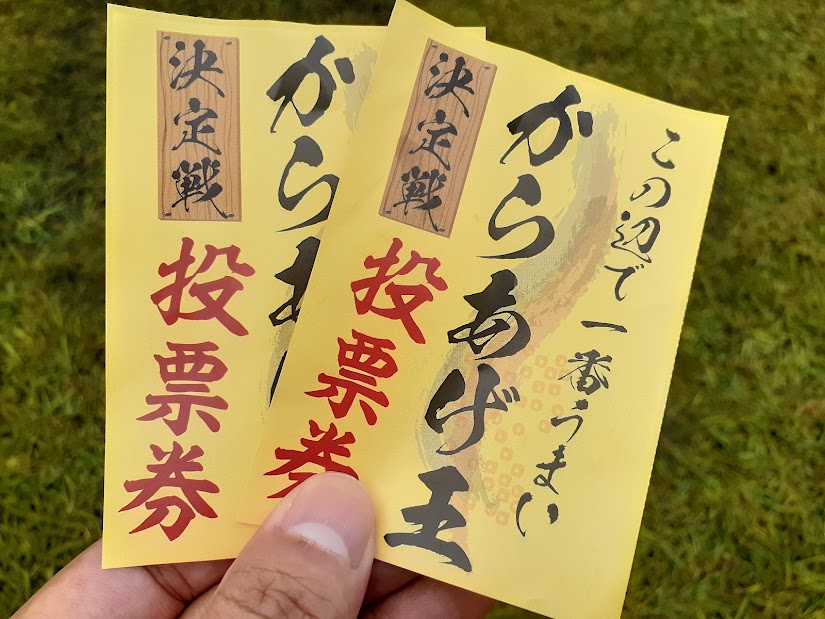 この辺で一番うまい
からあげ王
決定戦
投票券
からあ
決定戦
投票券